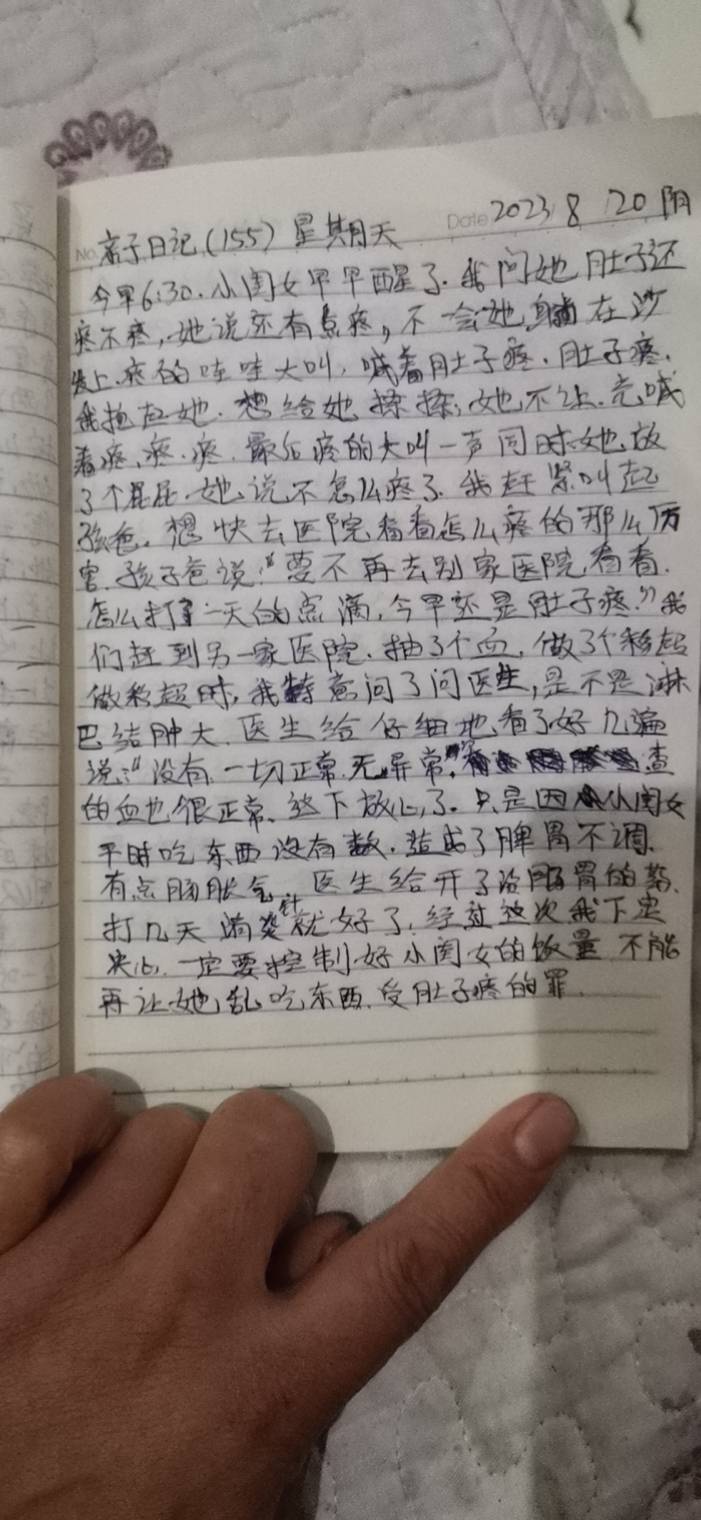 Date 2023 8 20 阴
No. 亲子日记(155) 星期天
今早6:30.小闺女早早醒了.我问她肚子还
疼不疼,她说还有点疼,不一会她躺在沙
发上.疼的哇哇大叫,喊着肚子疼.肚子疼.
我抱起她.想给她揉揉,她不让.光喊
着疼、疼.疼.最后疼的大叫一声同时她放
了个屁屁.她说不怎么疼了.我赶紧叫起
孩爸.想快去医院看看怎么疼的那么厉
害.孩子爸说:“要不再去别家医院看看.
怎么打了一天的点滴,今早还是肚子疼.”我
们赶到另一家医院.抽了个血,做了个彩超
做彩超时,我特意问了问医生,是不是淋
巴结肿大.医生给仔细地看了好几遍
说:“没有.一切正常.无异常.”查
的血也很正常、这下放心了.只是因小闺女
平时吃东西没有数.造成了脾胃不调.
有点肠胀气.医生给开了治胃的药.
打几天消炎针就好了.经过这次我下定
决心.一定要控制好小闺女的饭量 不能
再让她乱吃东西.受肚子疼的罪.